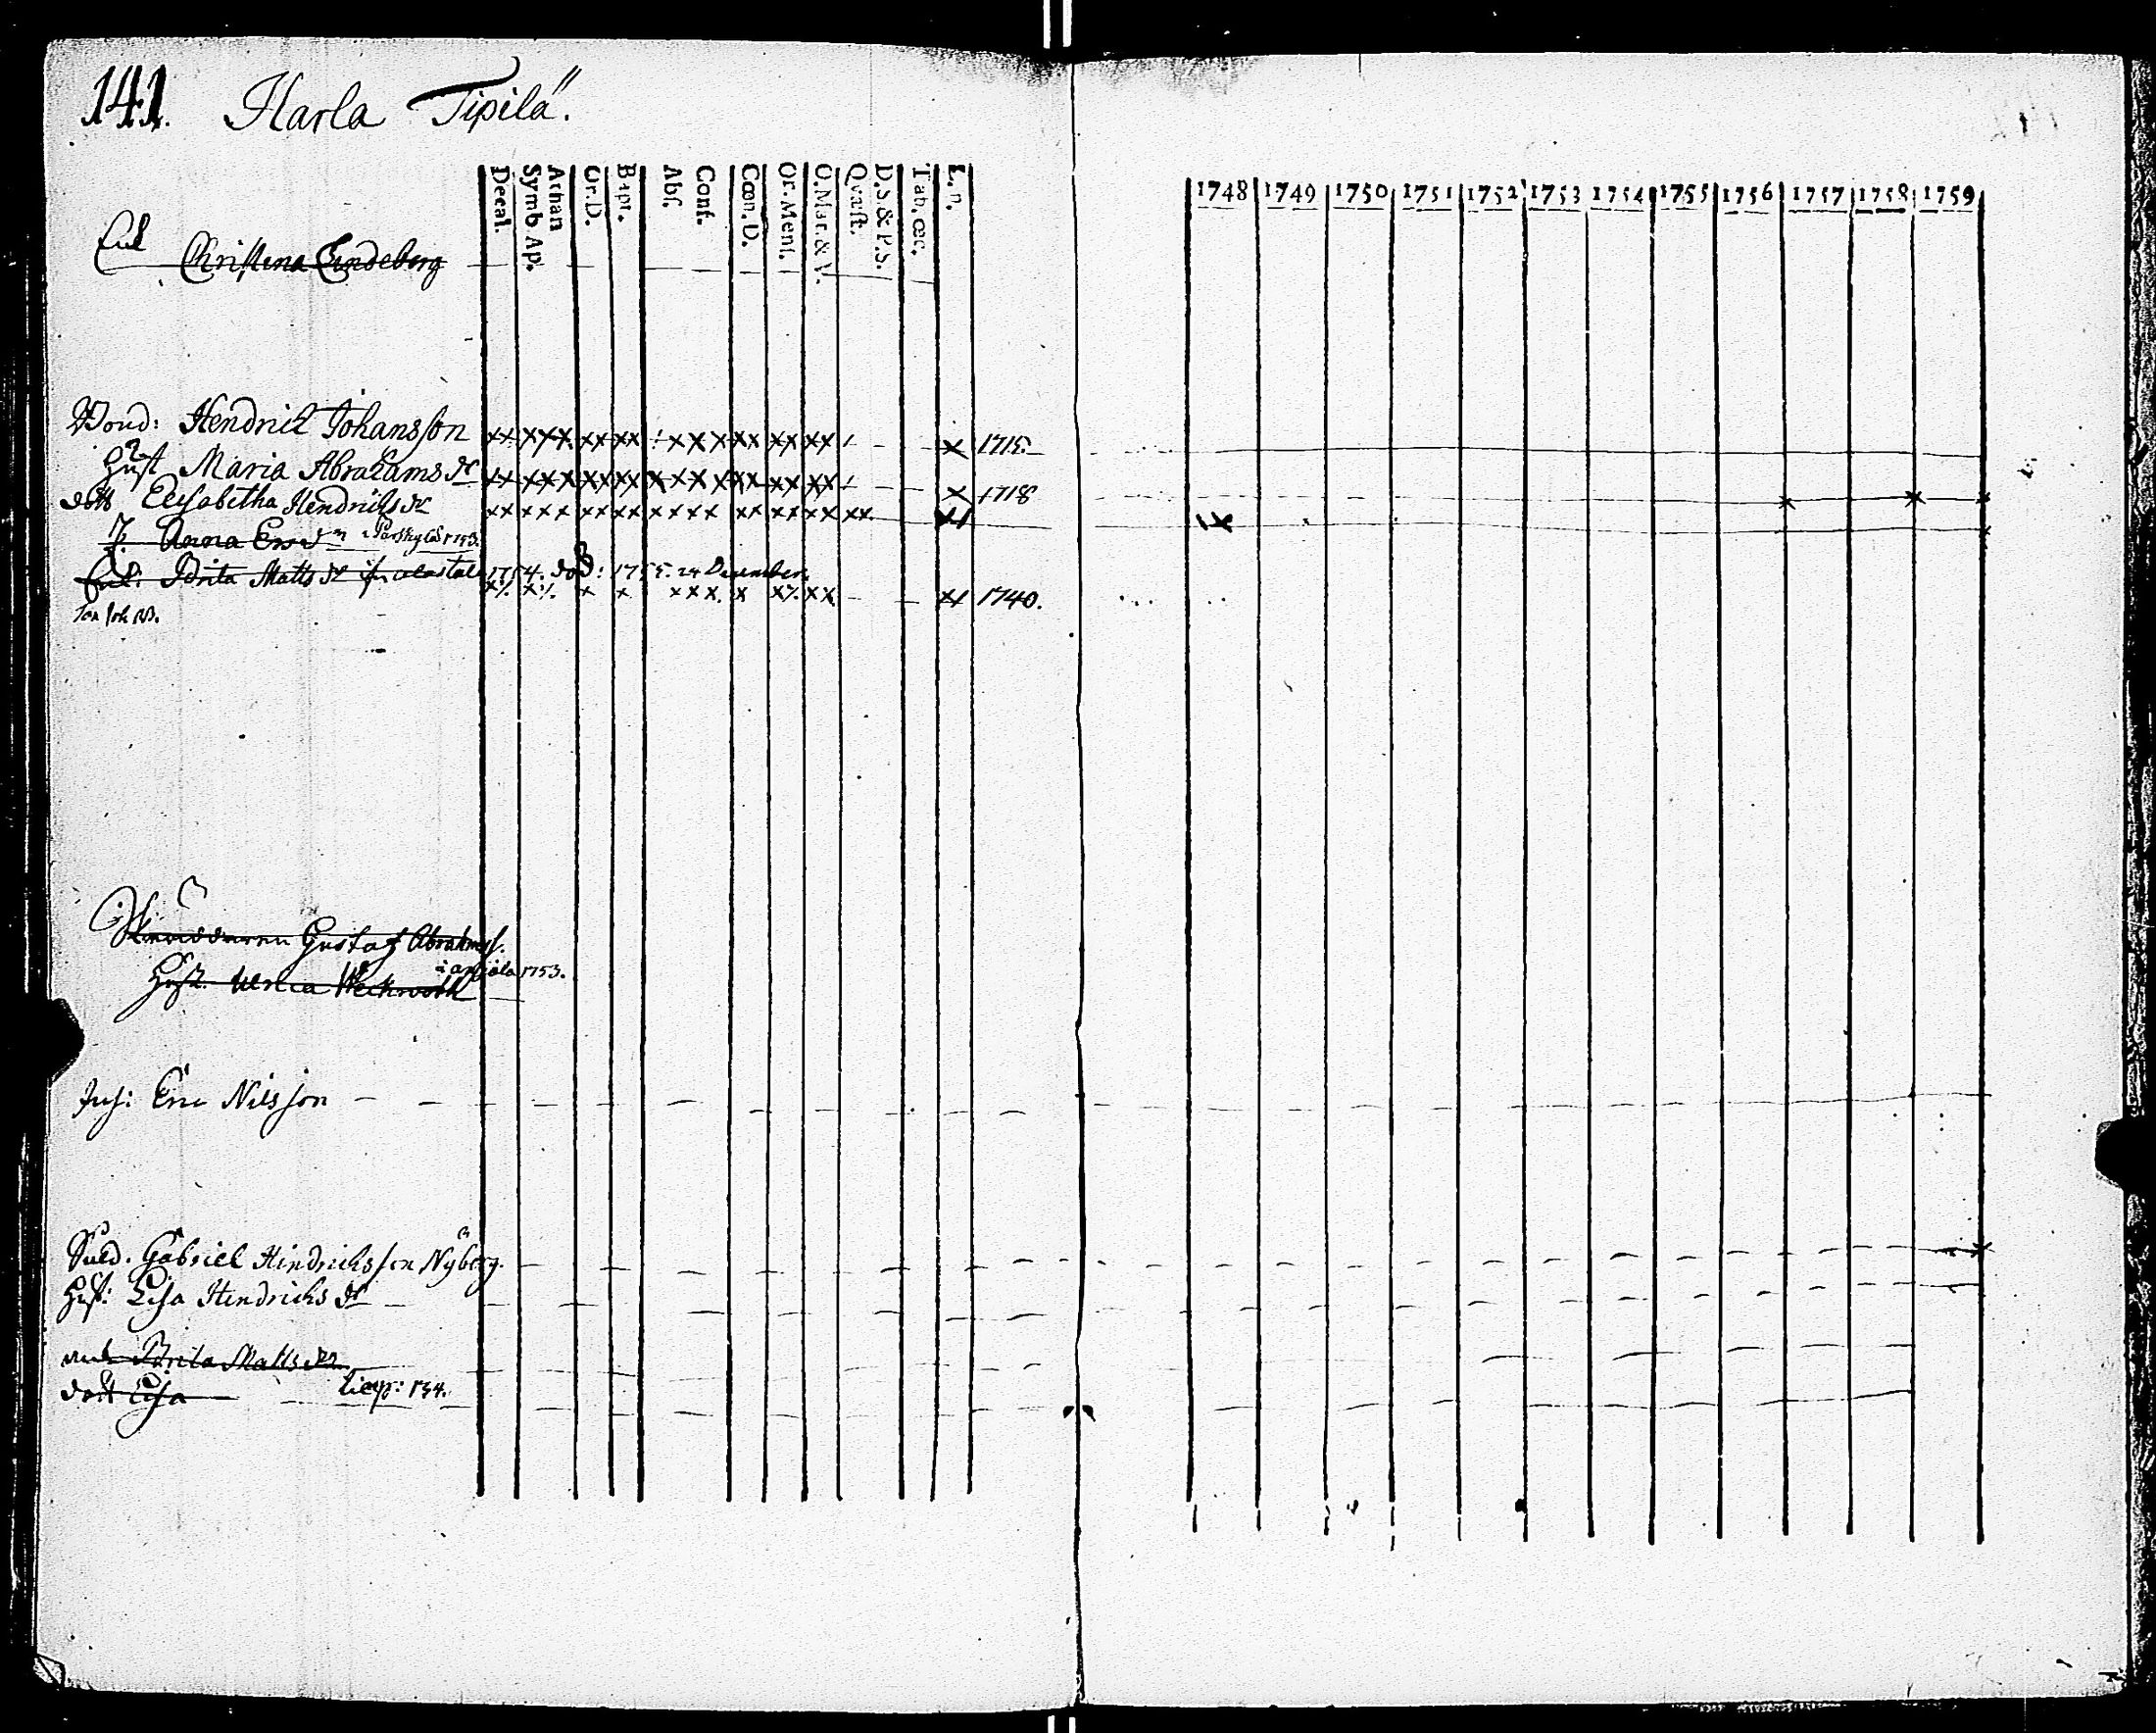 141. Harla Tipilä.
Decal. Symb. Ap. Athan Or.D. Bapt. Abs. Conf. Cœn. D. Or. Mens. O. Mat. & V. Quæst. D.S. & P.S. Tab. œc. L. n.
1748 1749 1750 1751 1752 1753 1754 1755 1756 1757 1758 1759
Enk Christina Lindeberg
Bond: Hendrich Johansson 1715.
Hust Maria Abrahams dr 1718
dott Elisabetha Hendrichs dr
P. Anna 1753.
Brita Matts dr 1754. död: 1755. 24 December.
1740.
Gustaf Abrahams.
Hust. Ulrica 1753.
Inh: Eric Nilsson
Suld. Gabriel Hindrichsson Nyberg.
Hust: Lisa Hendrichs dr
Brita Matts dr
dott Lisa